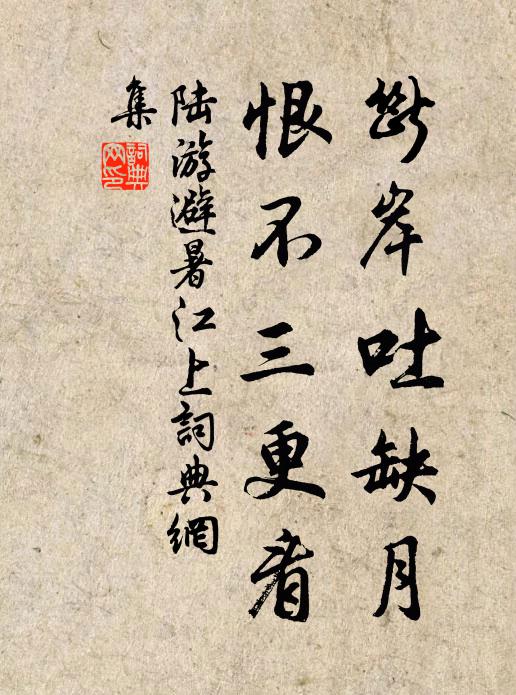 斷岸吐缺月
恨不三更看
陆游避暑江上詞典網
集
詞典
网印